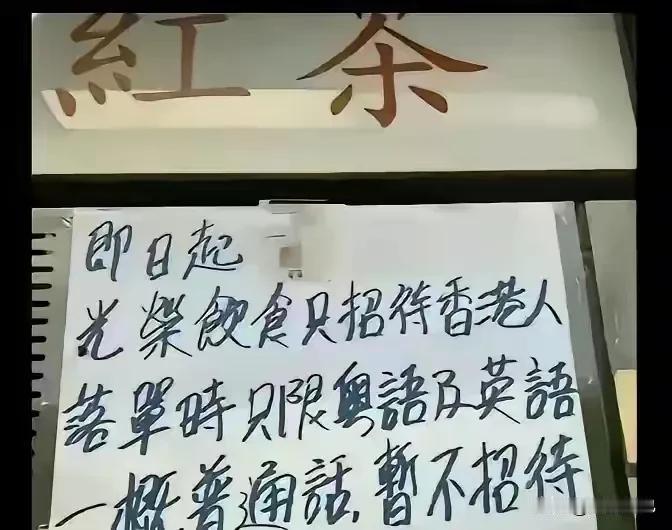 紅茶
即日起
光榮飲食只招待香港人
落單時只限粵語及英語
一概普通話，暫不招待